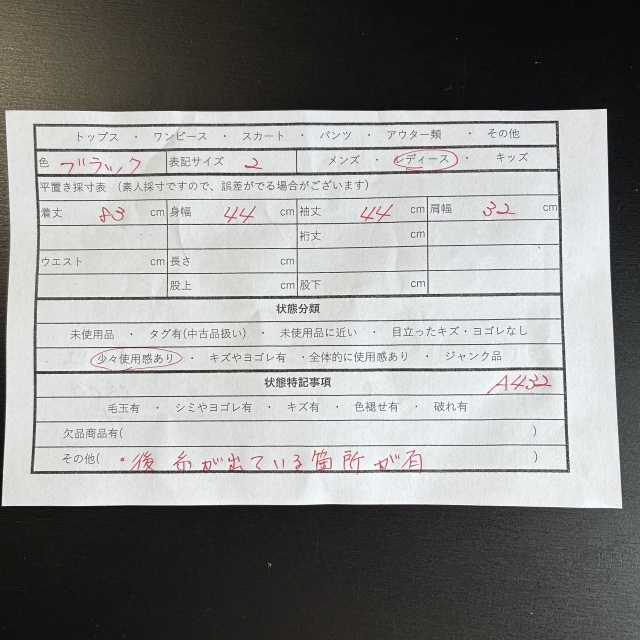 トップス ・ ワンピース ・ スカート ・ パンツ ・ アウター類 ・ その他
色 ブラック 表記サイズ 2 メンズ ・ レディース ・ キッズ
平置き採寸表 (素人採寸ですので、誤差がでる場合がございます)
着丈 83 cm 身幅 44 cm 袖丈 44 cm 肩幅 32 cm
裄丈 cm
ウエスト cm 長さ cm
股上 cm 股下 cm
状態分類
未使用品 ・ タグ有(中古品扱い) ・ 未使用品に近い ・ 目立ったキズ・ヨゴレなし
少々使用感あり ・ キズやヨゴレ有 ・全体的に使用感あり ・ ジャンク品
状態特記事項 A432
毛玉有 ・ シミやヨゴレ有 ・ キズ有 ・ 色褪せ有 ・ 破れ有
欠品商品有( )
その他( ・後 糸が出ている箇所が有 )